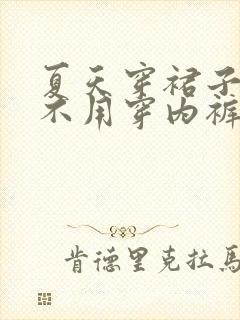 夏天穿裙子
不用穿内裤
肯德里克拉馬